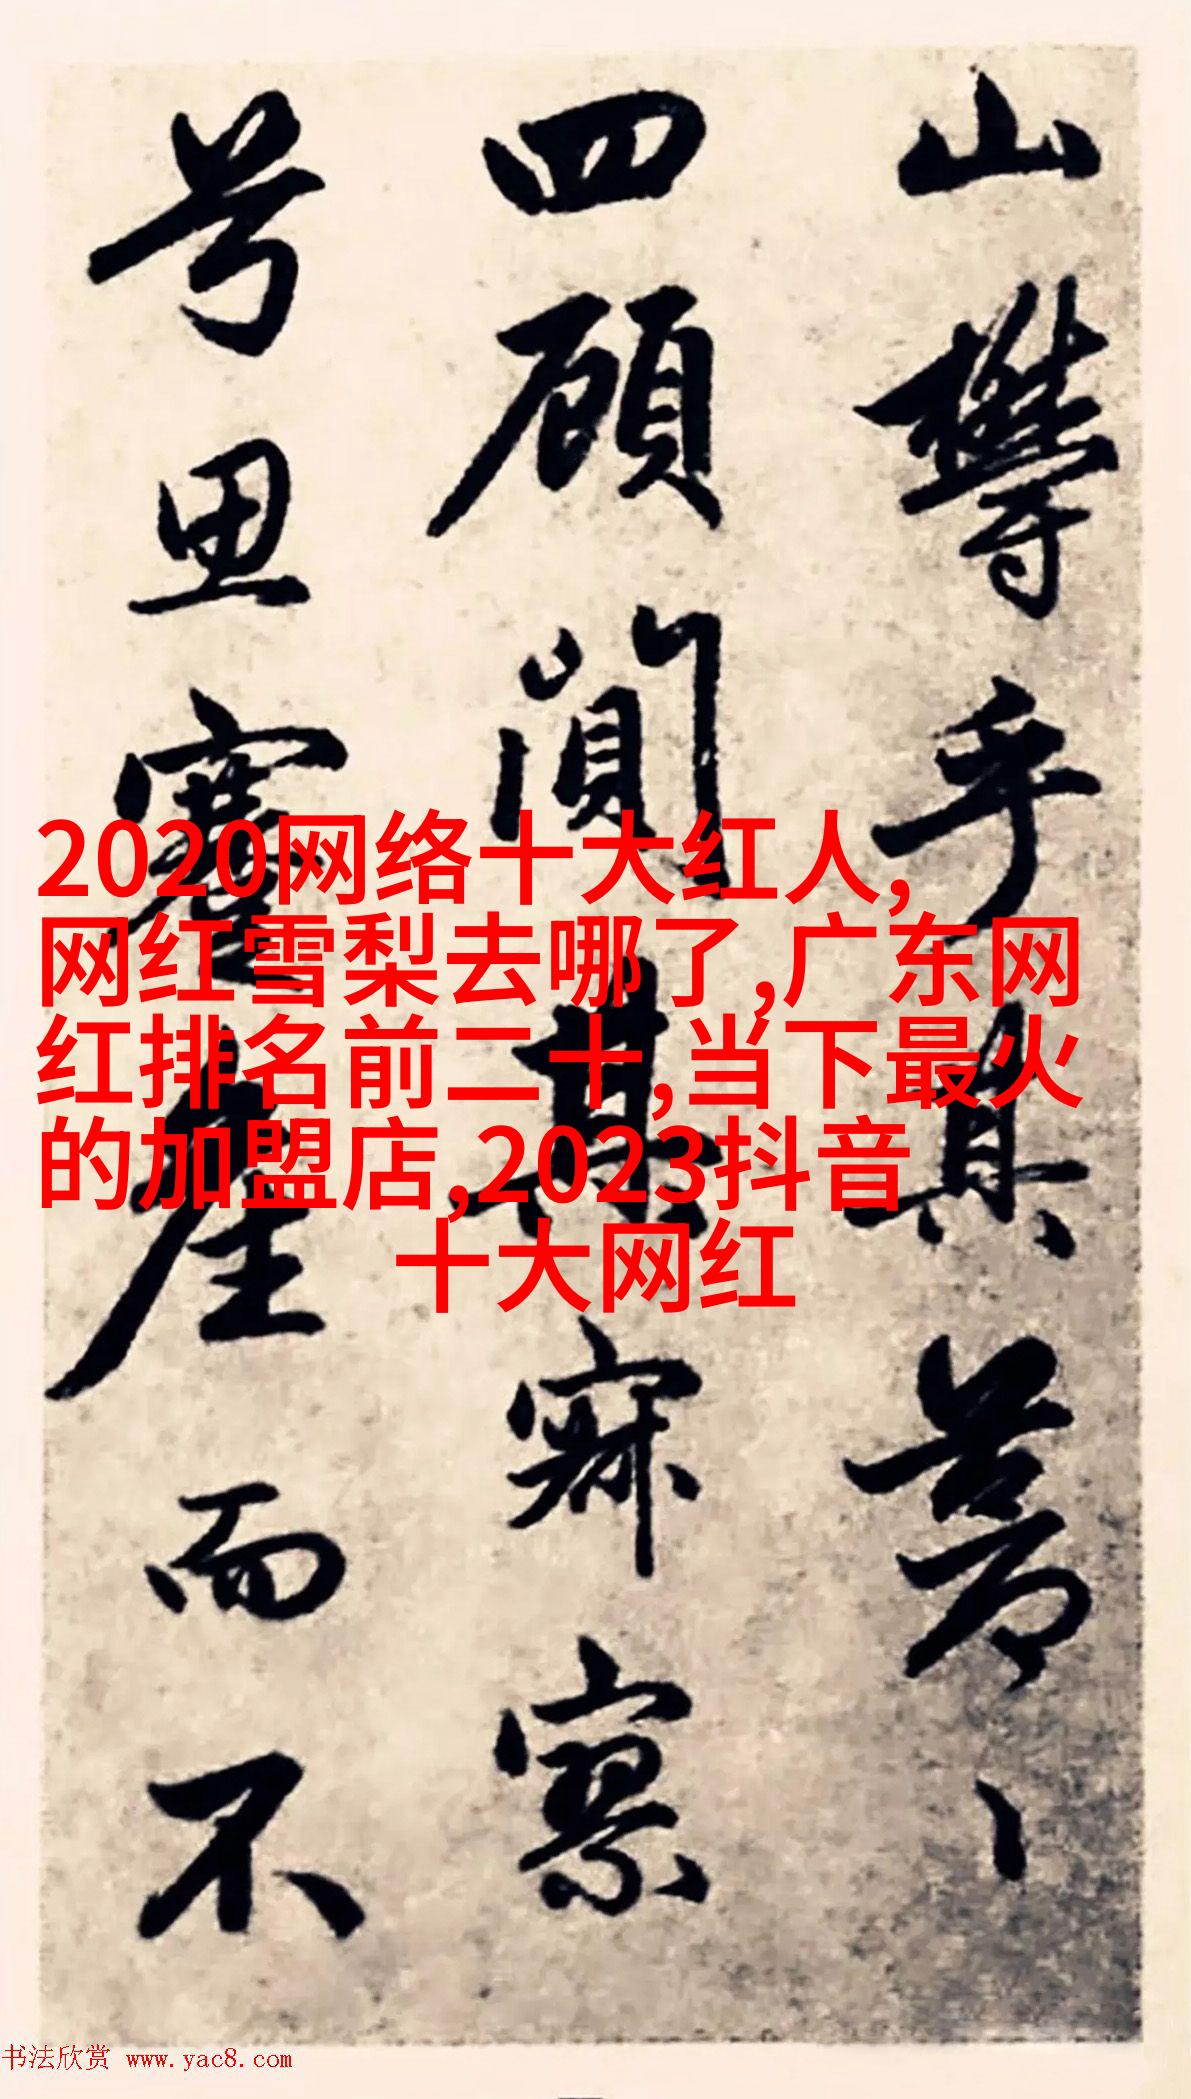 山欝乎其蒼〻
四顧闃其寂寥
兮思蹇產而不
2020网络十大红人,
网红雪梨去哪了,广东网
红排名前二十,当下最火
的加盟店,2023抖音
十大网红
书法欣赏 www.yac8.com